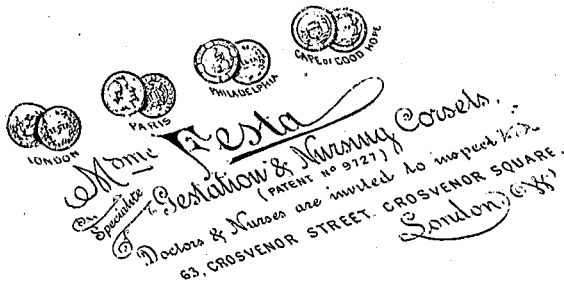 LONDON
PARIS
PHILADELPHIA
CAPE OF GOOD HOPE
Mdme Festa
Specialite
Gestation & Nursing Corsets.
(PATENT No 9727)
Doctors & Nurses are invited to inspect
63, GROSVENOR STREET GROSVENOR SQUARE,
London, (W)